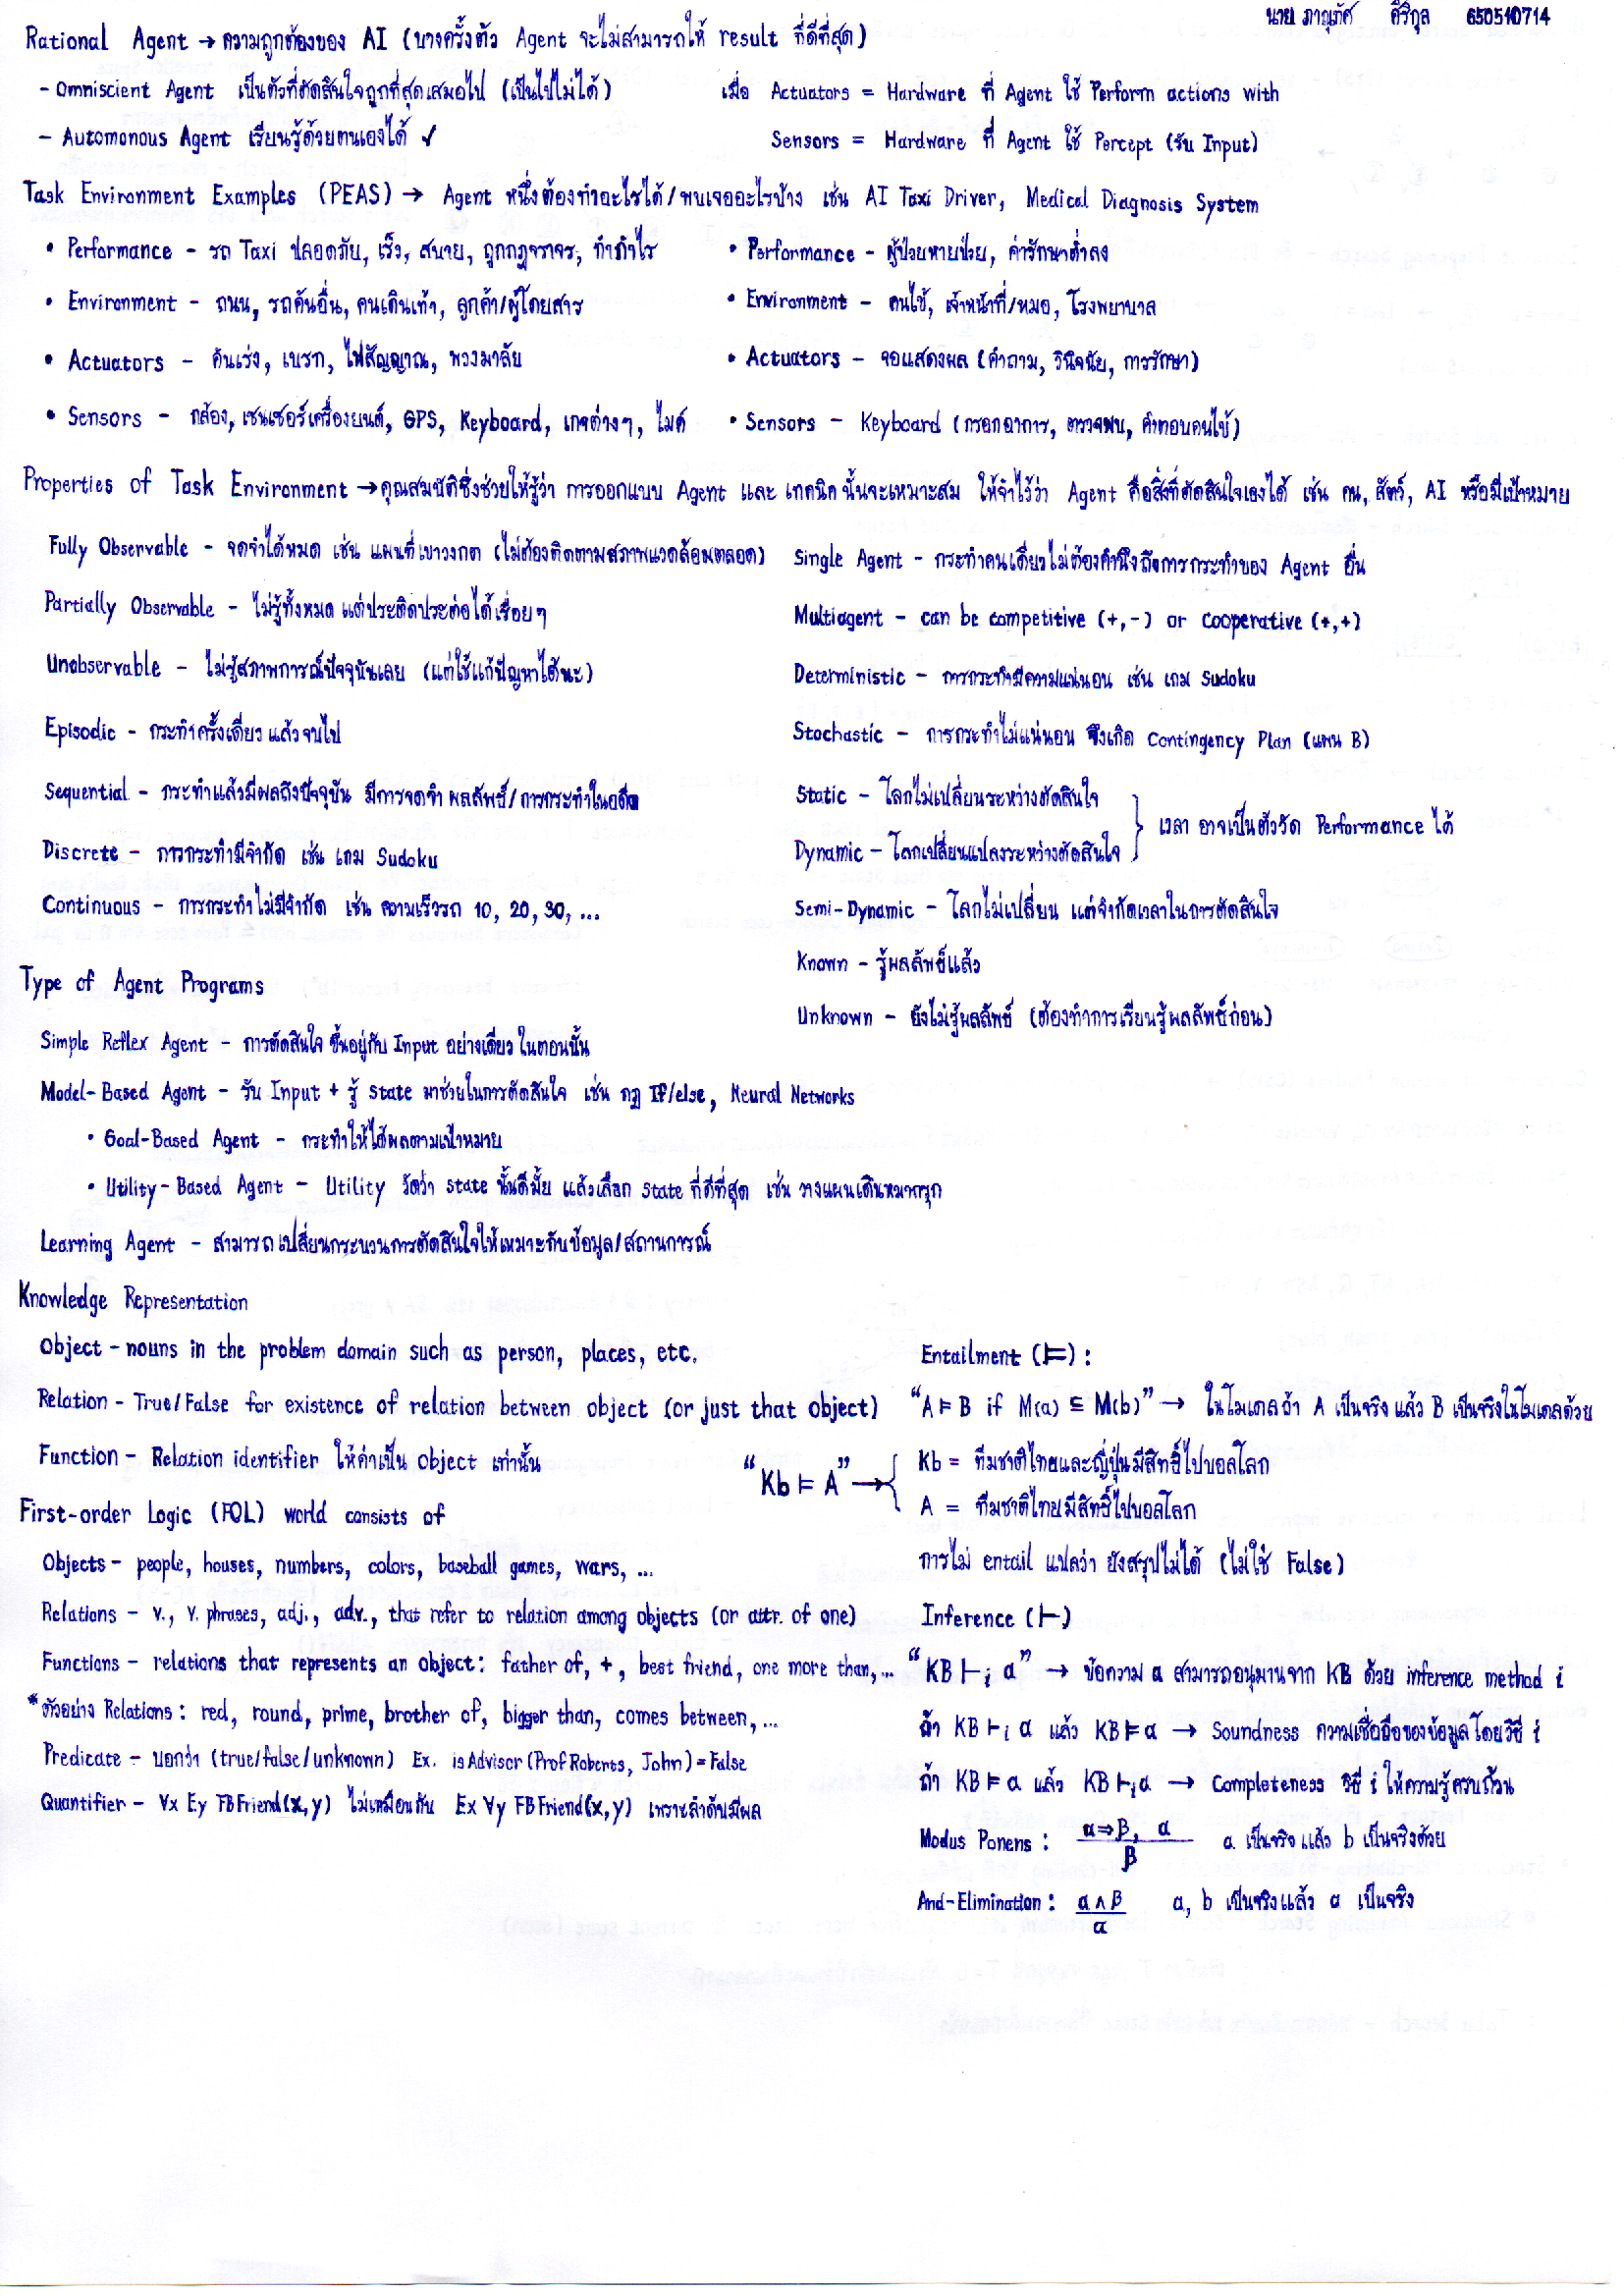 นาย ภาณุภัศ ศิริกุล 650510714
Rational Agent → ความถูกต้องของ AI (บางครั้งตัว Agent จะไม่สามารถให้ result ที่ดีที่สุด)
- Omniscient Agent เป็นตัวที่ตัดสินใจถูกที่สุดเสมอไป (เป็นไปไม่ได้)
เมื่อ Actuators = Hardware ที่ Agent ใช้ Perform actions with
- Automonous Agent เรียนรู้ด้วยตนเองได้ ✓
Sensors = Hardware ที่ Agent ใช้ Percept (รับ Input)
Task Environment Examples (PEAS) → Agent หนึ่งต้องทำอะไรได้/พบเจออะไรบ้าง เช่น AI Taxi Driver, Medical Diagnosis System
• Performance - รถ Taxi ปลอดภัย, เร็ว, สบาย, ถูกกฎจราจร, ทำกำไร
• Environment - ถนน, รถคันอื่น, คนเดินเท้า, ลูกค้า/ผู้โดยสาร
• Actuators - คันเร่ง, เบรก, ไฟสัญญาณ, พวงมาลัย
• Sensors - กล้อง, เซนเซอร์เครื่องยนต์, GPS, Keyboard, เกจต่างๆ, ไมค์
• Performance - ผู้ป่วยหายป่วย, ค่ารักษาต่ำลง
• Environment - คนไข้, เจ้าหน้าที่/หมอ, โรงพยาบาล
• Actuators - จอแสดงผล (คำถาม, วินิจฉัย, การรักษา)
• Sensors - Keyboard (กรอกอาการ, ตรวจพบ, คำตอบคนไข้)
Properties of Task Environment → คุณสมบัติซึ่งช่วยให้รู้ว่า การออกแบบ Agent และ เทคนิคนั้นจะเหมาะสม ให้จำไว้ว่า Agent คือสิ่งที่ตัดสินใจเองได้ เช่น คน, สัตว์, AI หรือมีเป้าหมาย
Fully Observable - จดจำได้หมด เช่น แผนที่เขาวงกต (ไม่ต้องติดตามสภาพแวดล้อมตลอด)
Partially Observable - ไม่รู้ทั้งหมด แต่ประติดประต่อได้เรื่อยๆ
Unobservable - ไม่รู้สภาพการณ์ปัจจุบันเลย (แต่ใช้แก้ปัญหาได้นะ)
Episodic - กระทำครั้งเดียว แล้วจบไป
Sequential - กระทำแล้วมีผลถึงปัจจุบัน มีการจดจำ ผลลัพธ์/การกระทำในอดีต
Discrete - การกระทำมีจำกัด เช่น เกม Sudoku
Continuous - การกระทำไม่มีจำกัด เช่น ความเร็วรถ 10, 20, 30, ...
Single Agent - กระทำคนเดียวไม่ต้องคำนึงถึงการกระทำของ Agent อื่น
Multiagent - can be competitive (+,-) or cooperative (+,+)
Deterministic - การกระทำมีความแน่นอน เช่น เกม Sudoku
Stochastic - การกระทำไม่แน่นอน จึงเกิด Contingency Plan (แผน B)
Static - โลกไม่เปลี่ยนระหว่างตัดสินใจ
Dynamic - โลกเปลี่ยนแปลงระหว่างตัดสินใจ
} เวลา อาจเป็นตัววัด Performance ได้
Semi-Dynamic - โลกไม่เปลี่ยน แต่จำกัดเวลาในการตัดสินใจ
Known - รู้ผลลัพธ์แล้ว
Unknown - ยังไม่รู้ผลลัพธ์ (ต้องทำการเรียนรู้ผลลัพธ์ก่อน)
Type of Agent Programs
Simple Reflex Agent - การตัดสินใจ ขึ้นอยู่กับ Input อย่างเดียว ในตอนนั้น
Model-Based Agent - รับ Input + รู้ state มาช่วยในการตัดสินใจ เช่น กฎ If/else, Neural Networks
• Goal-Based Agent - กระทำให้ได้ผลตามเป้าหมาย
• Utility-Based Agent - Utility วัดว่า state นั้นดีมั้ย แล้วเลือก state ที่ดีที่สุด เช่น วางแผนเดินหมากรุก
Learning Agent - สามารถเปลี่ยนกระบวนการตัดสินใจให้เหมาะกับข้อมูล/สถานการณ์
Knowledge Representation
Object - nouns in the problem domain such as person, places, etc.
Relation - True/False for existence of relation between object (or just that object)
Function - Relation identifier ให้ค่าเป็น object เท่านั้น
First-order Logic (FOL) world consists of
Objects - people, houses, numbers, colors, baseball games, wars, ...
Relations - v., v. phrases, adj., adv., that refer to relation among objects (or attr. of one)
Functions - relations that represents an object: father of, +, best friend, one more than, ...
*ตัวอย่าง Relations: red, round, prime, brother of, bigger than, comes between, ...
Predicate - บอกว่า (true/false/unknown) Ex. isAdvisor(Prof Roberts, John) = False
Quantifier - ∀x Ey FBFriend(x,y) ไม่เหมือนกับ Ex ∀y FBFriend(x,y) เพราะลำดับมีผล
Entailment (⊨):
"A ⊨ B if M(a) ⊆ M(b)" → ในโมเดลถ้า A เป็นจริง แล้ว B เป็นจริงในโมเดลด้วย
"Kb ⊨ A" → { Kb = ทีมชาติไทยและญี่ปุ่นมีสิทธิ์ไปบอลโลก
A = ทีมชาติไทยมีสิทธิ์ไปบอลโลก
การไม่ entail แปลว่า ยังสรุปไม่ได้ (ไม่ใช่ False)
Inference (⊢)
"KB ⊢i α" → ข้อความ α สามารถอนุมานจาก KB ด้วย inference method i
ถ้า KB ⊢i α แล้ว KB ⊨ α → Soundness ความเชื่อถือของข้อมูลโดยวิธี i
ถ้า KB ⊨ α แล้ว KB ⊢i α → Completeness วิธี i ให้ความรู้ครบถ้วน
Modus Ponens: α⇒β, α / β a เป็นจริง แล้ว b เป็นจริงด้วย
And-Elimination: α ∧ β / α a, b เป็นจริงแล้ว a เป็นจริง